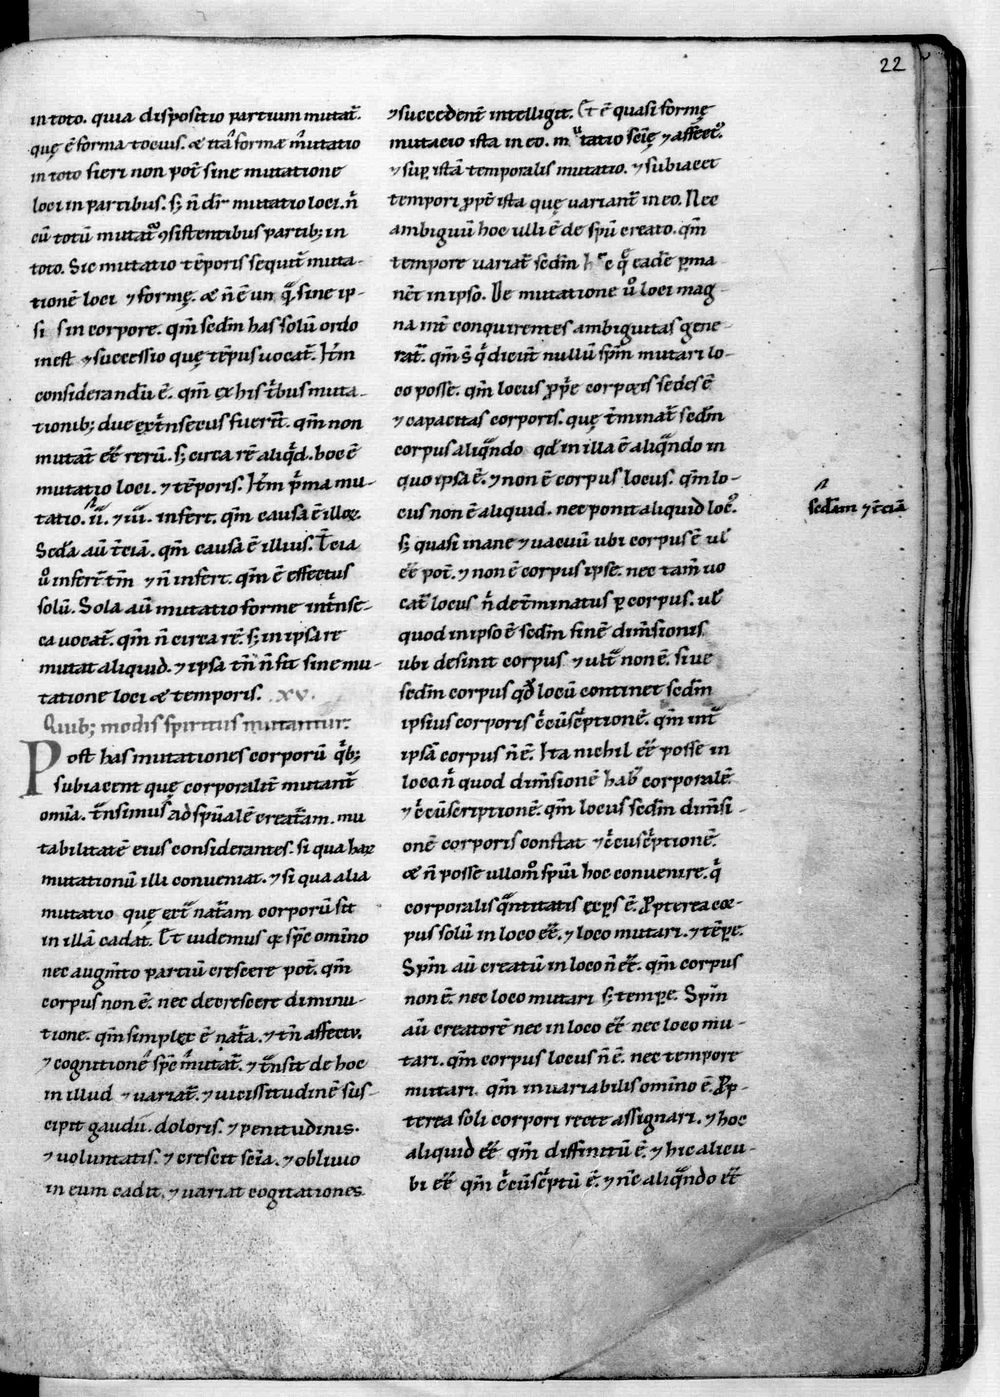 22
in toto. quia dispositio partium mutat̄.
quę ē forma totius. & ita formæ mutatio
in toto fieri non pot̄ sine mutatione
loci in partibus. s; n̄ dr̄ mutatio loci. n̄
cū totū mutat̄ ꝯsistentibus partib; in
toto. Sic mutatio tēporis sequit̄ muta-
tionē loci ⁊ formę. & n̄ ē un q̄ sine ip-
si sin corpore. qm̄ sedm̄ has solū ordo
inest ⁊ successio quę tēpus uocat̄. Itm̄
considerandū ē. qm̄ ex his t̄bus muta-
tionib; due ext̄nsecus fuer̄t. qm̄ non
mutāt eē̄ rerū. s; circa rē aliq̄d. hoc ē
mutatio loci. ⁊ tēporis. Itm̄ p̄ma mu-
tatio. ii. ⁊ iii. infert. qm̄ causa ē illoꝝ.
Sed̄a aū t̄ciā. qm̄ causa ē illius. T̄cia
u̇̄ infert tm̄ ⁊ n̄ infert. qm̄ ē effectus
solū. Sola aū mutatio forme int̄nse-
ca uocat̄. qm̄ n̄ circa rē. s; in ipsa re
mutat aliquid. ⁊ ipsa tn̄ n̄ fit sine mu-
tatione loci & temporis. xv.
Quib; modis spiritus mutantur.
Post has mutationes corporū q̄b;
subiacent quę corporalit̄ mutant̄
omīa. t̄nsimus ad spūalē creat̄am. mu
tabilitatē eius considerantes. si qua haꝝ
mutationū illi conueniat. ⁊ si qua alia
mutatio quę ext̄ nat̄am corporū sit
in illā cadat. Et uidemus qꝫ spc̄ omīno
nec augm̄to partiū crescere pot̄. qm̄
corpus non ē. nec decrescere diminu-
tione. qm̄ simplex ē nat̄a. ⁊ tn̄ affectu
⁊ cognitionē spc̄ mutat̄. ⁊ t̄nsit de hoc
in illud ⁊ uariat̄. ⁊ uicissitudinē sus-
cipit gaudii. doloris. ⁊ penitudinis.
⁊ uoluntatis. ⁊ crescit scīa. ⁊ obliuio
in eum cadit. ⁊ uariat cogitationes
⁊ succedent̄ intelligit. Et ē quasi formę
mutacio ista in eo. mutatio scīę ⁊ affect᷒.
⁊ sup̱ istā temporalis mutatio. ⁊ subiacet
tempori ꝓpt̄ ista quę uariant̄ in eo. Nec
ambiguū hoc ulli ē de spū creato. qm̄
tempore uariat̄ sedm̄ hec q̄ eadē ꝑma
nēt in ipso. De mutatione u̇̄ loci mag-
na int̄ conquirentes ambiguitas gene-
rat̄. qm̄ s̄ q̄ dicūt nullū spm̄ mutari lo-
co posse. qm̄ locus ꝓp̄e corporis sedes ē
⁊ capacitas corporis. quę t̄minat̄ sedm̄
corpus aliq̄ndo qd̄ in illa ē aliq̄ndo in
quo ipsa ē. ⁊ non ē corpus locus. qm̄ lo-
cus non ē aliquid. nec ponit aliquid loc᷒.
s; quasi inane ⁊ uacuū ubi corpus ē ul̄
eē̄ pot̄. ⁊ non ē corpus ipse. nec tam̄ uo
cat̄ locus n̄ det̄minatus ꝑ corpus. ul̄
quod in ipso ē sedm̄ finē dim̄sionis
ubi desinit corpus ⁊ ult̄ non ē. siue
sedm̄ corpus qd̄ locū continet sedm̄
ipsius corporis c̄cūsc̄ptionē. qm̄ int̄
ipsā corpus n̄ ē. Ita nichil eē̄ posse in
loco n̄ quod dim̄sionē hab̄ corporalē
⁊ c̄cūscriptionē. qm̄ locus sedm̄ dim̄si-
onē corporis constat ⁊ c̄cūsc̄ptionē.
& n̄ posse ullom̄ spūi hoc conuenire. q̄
corporalis q̄ntitatis exꝑs ē. Ꝓpterea cor-
pus solū in loco eē̄. ⁊ loco mutari. ⁊ tēpe.
Spm̄ aū creatū in loco n̄ eē̄. qm̄ corpus
non ē. nec loco mutari s; tempe. Spm̄
aū creatorē nec in loco eē̄ nec loco mu-
tari. qm̄ corpus locus n̄ ē. nec tempore
mutari. qm̄ inuariabilis omīno ē. Ꝓp-
terea soli corpori recte assignari. ⁊ hoc
aliquid eē̄ qm̄ diffinitū ē. ⁊ hic alicu-
bi eē̄ qm̄ c̄cūsc̄ptū ē. ⁊ nc̄ aliq̄ndo eē̄
sedam ⁊ t̄ciā